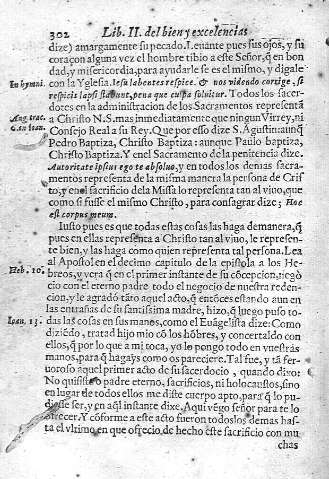 302 Lib. II. del bien y excelencias
dize) amargamente su pecado. Leuante pues sus ojos, y su
coraçon alguna vez el hombre tibio a este Señor, q̃ en bon
dad, y misericordia, para ayudarle se es el mismo, y digale
In hymni. con la Yglesia. Iesu labentes respice. & nos videndo corrige, si
respicis lapsi stabunt, pena que culpa soluitur. Todos los sacer-
dotes en la administracion de los Sacramentos representã
Aug. trac. a Christo N.S. mas inmediatamente que ningun Virrey, ni
in Ioan. Consejo Real a su Rey. Que por esso dize S. Agustin: aunq̃
Pedro Baptiza, Christo Baptiza: aunque Paulo baptiza,
Christo Baptiza. Y en el Sacramento de la penitẽcia dize.
Autoritate ipsius ego te absoluo, y en todos los demas sacra-
mentos representa de la misma manera la persona de Cris
to; y en el sacrificio dela Missa lo representa tan al viuo, que
como si fuesse el mismo Christo, para consagrar dize; Hoc
est corpus meum.
Iusto pues es que todas estas cosas las haga demanera, q̃
pues en ellas representa a Christo tan al viuo, le represen-
te bien, y las haga como quien representa tal persona. Lea
al Apostol en el decimo capitulo de la epistola a los He-
Heb. 10. breos, y vera q̃ en el primer instante de su cõcepcion, nego
cio con el eterno padre todo el negocio de nuestra reden-
cion, y le agradò tãto aquel acto, q̃ entõces estando aun en
las entrañas de su santissima madre, hizo, q̃ luego puso to-
Ioan. 13. das las cosas en sus manos, como el Euãgelista dize: Como
diziẽdo, tratad hijo mio cõ los hõbres, y concertaldo con
ellos, q̃ por lo que a mi toca, yo lo pongo todo en vuestras
manos, para q̃ hagays como os pareciere. Tal fue, y tã fer-
uoroso aquel primer acto de su sacerdocio, quando dixo:
No quisiste padre eterno, sacrificios, ni holocaustos, sino
en lugar de todos ellos me diste cuerpo apto, para q̃ lo pu-
diesse ser, y en aq̃l instante dixe, Aqui vẽgo señor para te lo
ofrecer. Y cõforme a este acto fueron todos los demas has-
ta el vltimo en que ofrecio de hecho este sacrificio con mu
chas